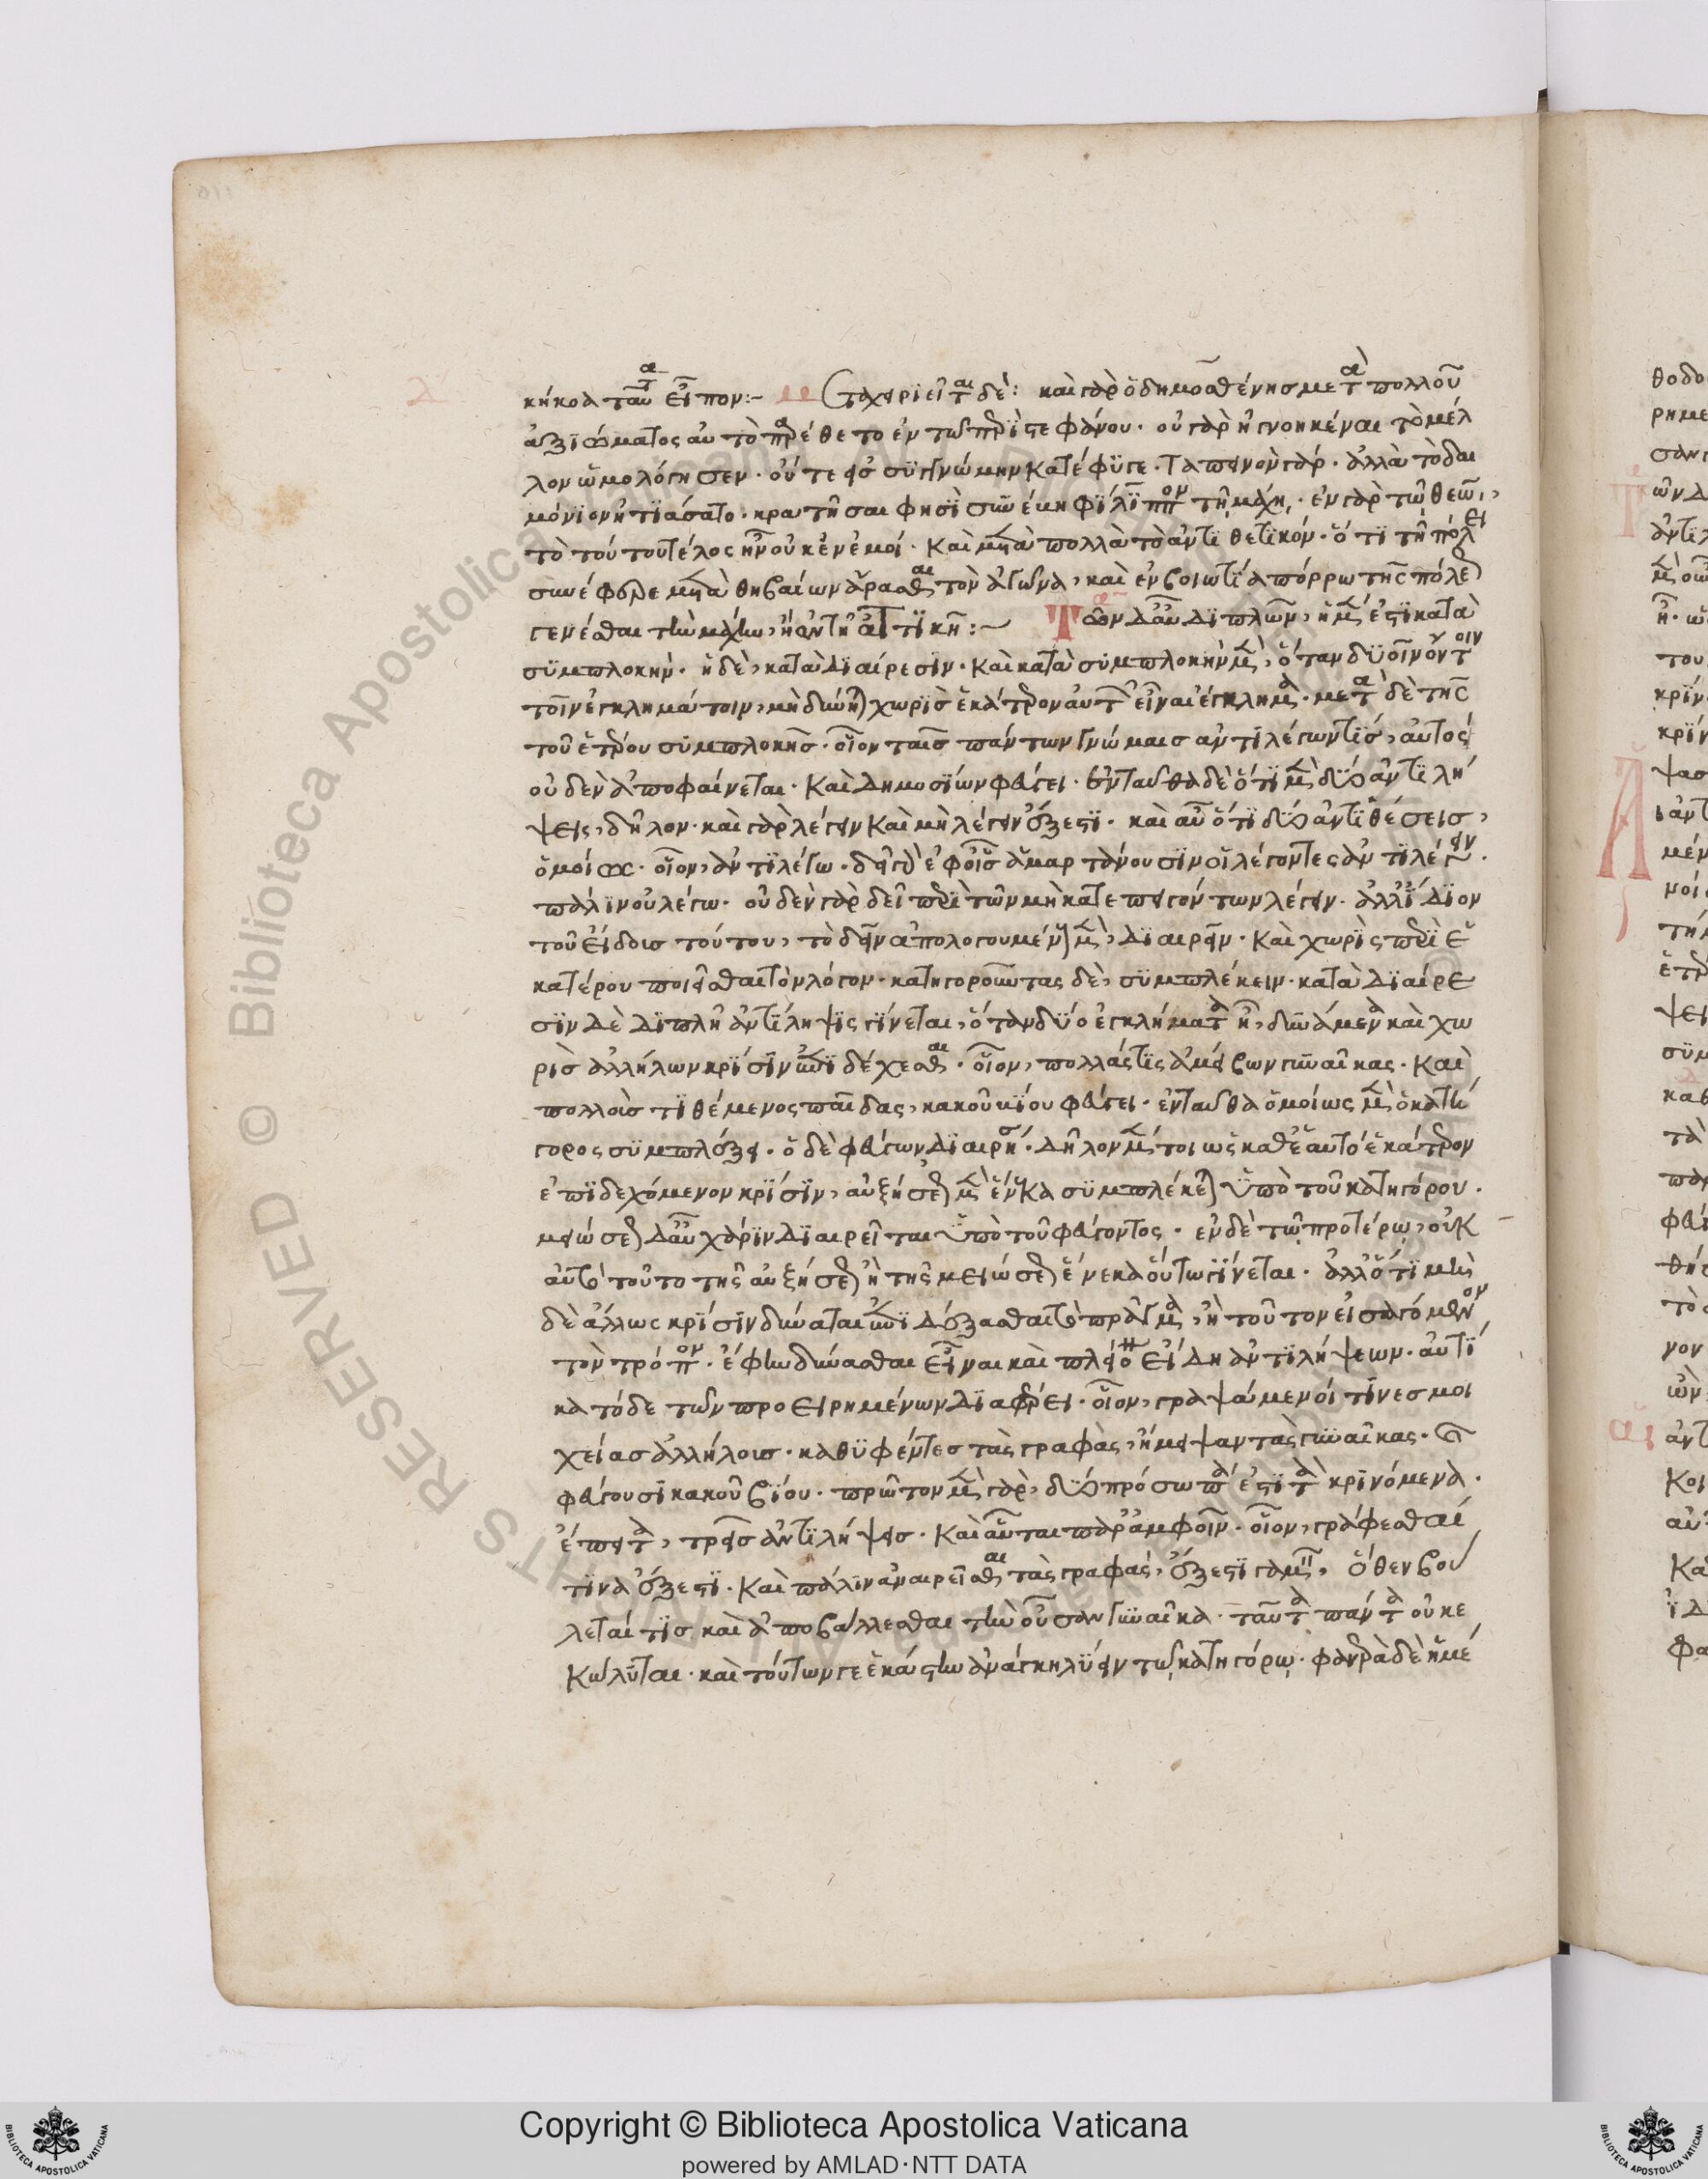 κήκοα ταῦτα εἶπον:~ καὶ γὰρ ὁ δημοσθένης μετὰ πολλοῦ
ἀξιώματος αὐτὸ προέθετο ἐν τῷ περὶ στεφάνου· οὐ γὰρ ἠγνοηκέναι τὸ μέλ
λον ὡμολόγησεν· οὔτε εἰς συγγνώμην κατέφυγε· ταπεινὸν γάρ· ἀλλὰ τὸ δαι
μόνιον ἠτιάσατο· κρατῆσαι φησὶ συνέβη φίλιππον τῇ μάχῃ· ἐν γὰρ τῷ θεῷ,
τὸ τούτου τέλος ἦν οὐκ ἐν ἐμοί· καὶ μετὰ πολλὰ τὸ ἀντιθετικόν· ὅτι τῇ πόλει
συνέφερε μετὰ θηβαίων ἄρασθαι τὸν ἀγῶνα, καὶ ἐν βοιωτίᾳ πόρρω τῆς πόλεως
γενέσθαι τὴν μάχην, ἢ ἐν τῇ ἀττικῇ:~ Τῶν δ' αὖ διπλῶν, ἡ μέν ἐστι κατὰ
συμπλοκήν· ἡ δὲ, κατὰ διαίρεσιν· καὶ κατὰ συμπλοκὴν μὲν, ὅταν δυοῖν ὄντοιν
τοῖν ἐγκλημάτοιν, μὴ δύνηται χωρὶς ἑκάτερον αὐτῶν εἶναι ἔγκλημα· μετὰ δὲ τῆς
τοῦ ἑτέρου συμπλοκῆς· οἷον ταῖς πάντων γνώμαις ἀντιλέγων τίς, αὐτὸς
οὐδὲν ἀποφαίνεται· καὶ δημοσίων φεύγει· ἐνταῦθα δὲ ὅτι μὲν δύο ἀντιλή
ψεις, δῆλον· καὶ γὰρ λέγειν καὶ μὴ λέγειν ἔξεστι· καὶ αὖ ὅτι δύο ἀντιθέσεις,
ὁμοίως· οἷον, ἀντιλέγω· δεῖ γὰρ ἐφ' οἷς ἁμαρτάνουσιν οἱ λέγοντες ἀντιλέγειν·
πάλιν οὐ λέγω· οὐδὲν γὰρ δεῖ περὶ τῶν μὴ κατεπειγόντων λέγειν· ἀλλ' ἴδιον
τοῦ εἴδους τούτου, τὸ δεῖν ἀπολογουμένους μὲν, διαιρεῖν· καὶ χωρὶς περὶ ἑ
κατέρου ποιεῖσθαι τὸν λόγον· κατηγοροῦντας δὲ, συμπλέκειν· κατὰ διαίρε
σιν δὲ διπλῆ ἀντίληψις γίνεται, ὅταν δύο ἐγκλήματα ᾖ, δυνάμενα καὶ χω
ρὶς ἀλλήλων κρίσιν ἐπιδέχεσθαι· οἷον, πολλάς τις ἀμείβων γυναῖκας· καὶ
πολλοῖς τιθέμενος παῖδας, κακοῦ βίου φεύγει· ἐνταῦθα ὁμοίως μὲν ὁ κατή
γορος συμπλέξει· ὁ δὲ φεύγων διαιρήσει· δῆλον μέντοι ὡς καθ' ἑαυτὸ ἑκάτερον
ἐπιδεχόμενον κρίσιν, αὐξήσεως μὲν ἕνεκα συμπλέκεται ὑπὸ τοῦ κατηγόρου·
μειώσεως δ' αὖ χάριν διαιρεῖται ὑπὸ τοῦ φεύγοντος· ἐν δὲ τῷ προτέρῳ, οὐκ
αὐτὸ τοῦτο τῆς αὐξήσεως ἢ τῆς μειώσεως ἕνεκα οὕτω γίνεται· ἀλλ' ὅτι μη
δὲ ἄλλως κρίσιν δύναται ἐπιδέξασθαι τὸ πρᾶγμα, ἢ τοῦτον εἰσαγόμενον
τὸν τρόπον· ἔφην δύνασθαι εἶναι καὶ πλείω εἴδη ἀντιλήψεων· αὐτί
κα τόδε τῶν προειρημένων διαφέρει· οἷον, γραψάμενοί τινες μοι
χείας ἀλλήλους· καθυφέντες τὰς γραφὰς, ἤμειψαν τὰς γυναῖκας· καὶ
φεύγουσι κακοῦ βίου· πρῶτον μὲν γὰρ, δύο πρόσωπά ἐστι τὰ κρινόμενα·
ἔπειτα, τρεῖς ἀντιλήψεις· καὶ αὗται παρ' ἀμφοῖν· οἷον, γράφεσθαί
τινα ἔξεστι· καὶ πάλιν ἀναιρεῖσθαι τὰς γραφάς, ἔξεστι γαμεῖν, ὅθεν βού
λεταί τις καὶ ἀποβάλλεσθαι τὴν οὖσαν γυναῖκα· ταῦτα πάντα οὐ κε
κώλυται· καὶ τούτων γε ἑκάστην ἀνάγκη λύειν τῷ κατηγόρῳ· φανερὰ δὲ ἡ μέ